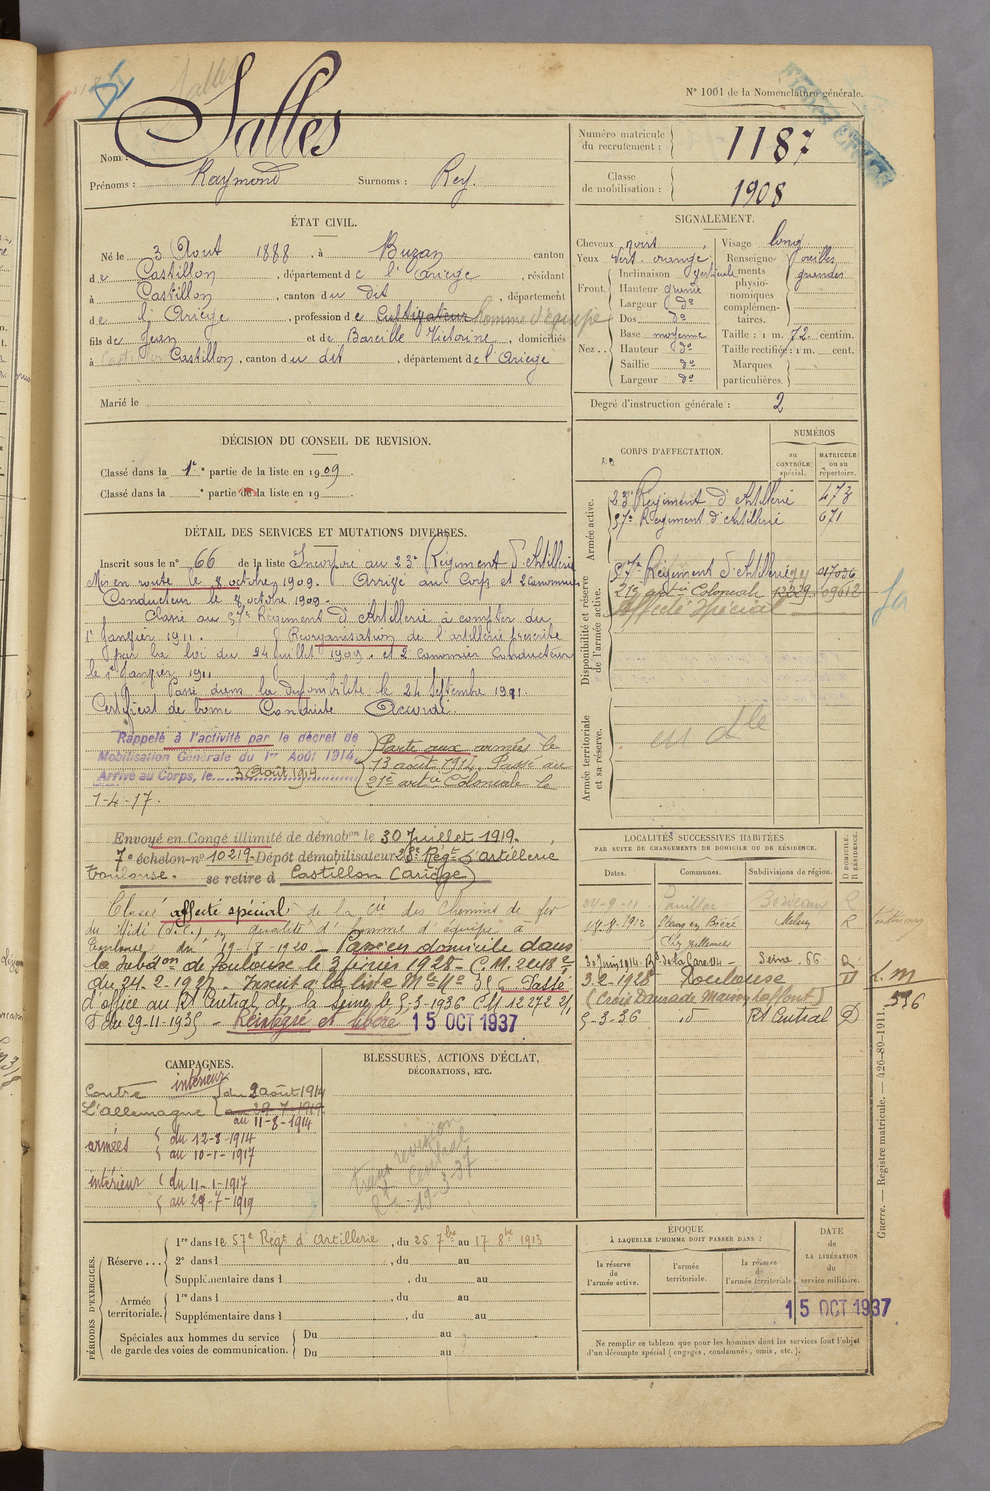 Salles
N° 1001 de la Nomenclature générale.
Nom : Salles
Prénoms : Raymond Surnoms : Rey.
Numéro matricule du recrutement : 1187
Classe de mobilisation : 1908
ÉTAT CIVIL.
Né le 3 Aout 1888, à Buzan canton
de Castillon, département de l'Ariege, résidant
à Castillon, canton du dit, département
de l'Ariege, profession de Cultivateur homme d'équipe
fils de Jean et de Bareille Victorine, domiciliés
à Castillon, canton du dit, département de l'Ariege
Marié le
SIGNALEMENT.
Cheveux noirs
Yeux vert orangé
Front. Inclinaison verticale
Hauteur grande
Largeur do
Nez.. Dos do
Base moyenne
Hauteur do
Saillie do
Largeur do
Visage long
Renseignements physionomiques complémentaires. oreilles grandes
Taille : 1 m. 72 centim.
Taille rectifiée : 1 m. cent.
Marques particulières.
Degré d'instruction générale : 2
DÉCISION DU CONSEIL DE REVISION.
Classé dans la 1e partie de la liste en 1909.
Classé dans la e partie de la liste en 19 .
DÉTAIL DES SERVICES ET MUTATIONS DIVERSES.
Inscrit sous le n° 66 de la liste Incorporé au 23e Régiment d'Artillerie
Mis en route le 8 octobre 1909. Arrivé au Corps et 2 Canonnier
Conducteur le 8 octobre 1909.
Classé au 57e Régiment d'Artillerie à compter du
1r Janvier 1911. Réorganisation de l'artillerie prescrite
par la loi du 24 Juillet 1909. et 2 Canonnier Conducteur
le 1r Janvier 1911
Passé dans la disponibilité le 24 Septembre 1911.
Certificat de bonne Conduite Accordé.
Rappelé à l'activité par le décret de
Mobilisation Générale du 1er Août 1914.
Arrivé au Corps, le 3 Août 1914
Parti aux armées le
13 août 1914. Passé au
21e artie Coloniale le
1-4-17.
Envoyé en Congé illimité de démobon le 30 Juillet 1919.
7e échelon - n° 10219. Dépôt démobilisateur 23e Régt d'artillerie
Toulouse. se retire à Castillon (Ariège)
Classé affecté spécial de la Cie des Chemins de fer
du Midi en qualité d'homme d'équipe à
du 19-8-1920. - Passé en domicile dans
la subdon de Toulouse le 3 février 1928 - C.M.
du 24-2-1927. Inscrit à la liste - Passé
d'office au Rt Central de la Seine le 5-3-1936 CM 12272
du 29-11-1935 - Réintégré et libéré 15 OCT 1937
CORPS D'AFFECTATION.
NUMÉROS
au CONTRÔLE spécial.
MATRICULE ou au répertoire.
Armée active.
23e Régiment d'Artillerie 473
57e Régiment d'Artillerie 671
Disponibilité et réserve de l'armée active.
57e Régiment d'Artillerie
21e artie Coloniale
Affecté spécial
Armée territoriale et sa réserve.
LOCALITÉS SUCCESSIVES HABITÉES
PAR SUITE DE CHANGEMENTS DE DOMICILE OU DE RÉSIDENCE.
Dates. Communes. Subdivisions de région. D domicile. R résidence.
24-9-11 Pauillac Bordeaux R
Melun R
Seine R
3-2-1928 Toulouse D
(Croix Daurade Maison Laffont)
5-3-36 id Rt Central D
L.m
536
CAMPAGNES.
Contre
L'Allemagne
intérieur
du 2 août 1914
au 29-7-1919
au 11-8-1914
armées du 12-8-1914
au 10-1-1917
intérieur du 11-1-1917
au 29-7-1919
BLESSURES, ACTIONS D'ÉCLAT,
DÉCORATIONS, ETC.
Central
19-3-37
PÉRIODES D'EXERCICES.
Réserve ... 1re dans le 57e Régt d'artillerie, du 25 7bre au 17 8bre 1913
2e dans l , du au
Supplémentaire dans l , du au
Armée territoriale. 1re dans l , du au
Supplémentaire dans l , du au
Spéciales aux hommes du service de garde des voies de communication. Du au
Du au
ÉPOQUE
À LAQUELLE L'HOMME DOIT PASSER DANS :
la réserve de l'armée active.
l'armée territoriale.
la réserve de l'armée territoriale
DATE de LA LIBÉRATION du service militaire.
15 OCT 1937
Ne remplir ce tableau que pour les hommes dont les services font l'objet
d'un décompte spécial (engagés, condamnés, omis, etc.).
Guerre. — Registre matricule. — 426-89-1911.